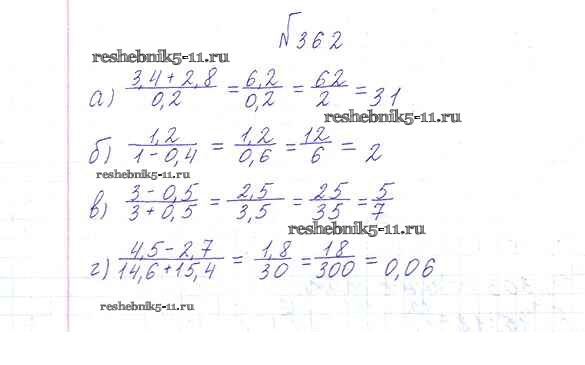 №362
reshebnik5-11.ru
а) (3,4 + 2,8)/0,2 = 6,2/0,2 = 62/2 = 31
reshebnik5-11.ru
б) 1,2/(1 - 0,4) = 1,2/0,6 = 12/6 = 2
reshebnik5-11.ru
в) (3 - 0,5)/(3 + 0,5) = 2,5/3,5 = 25/35 = 5/7
reshebnik5-11.ru
г) (4,5 - 2,7)/(14,6 + 15,4) = 1,8/30 = 18/300 = 0,06
reshebnik5-11.ru